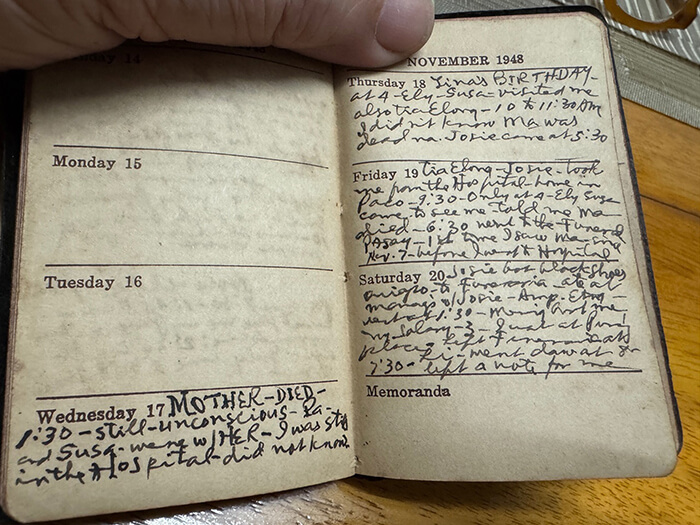 Monday 14
Monday 15
Tuesday 16
Wednesday 17 MOTHER-DIED-
1:30 - still-unconscious-
and Susa-were w/HER-I was still
in the Hospital-did not know
NOVEMBER 1948
Thursday 18 Tina's BIRTHDAY-
at 4-Ely-Susa-visited me
also Tia Elong-10 to 11:30 AM
I did not know Ma was
dead na. Josie came at 5:30
Friday 19 Tia Elong-Josie-took
me from the Hospital-home in
Paco-9:30-Only at 4-Ely Susa
came to see me told me Ma
died-6:30 went to the Funeral
Pasay-1st time I saw Ma since
Nov. 7-before I went to Hospital
Saturday 20 Josie bot black shoes
to Funeraria-ate at
w/Josie-
at 1:30-
my Salary-3-
place-left Funeraria at
7:30- went down at 8
left a note for me
Memoranda